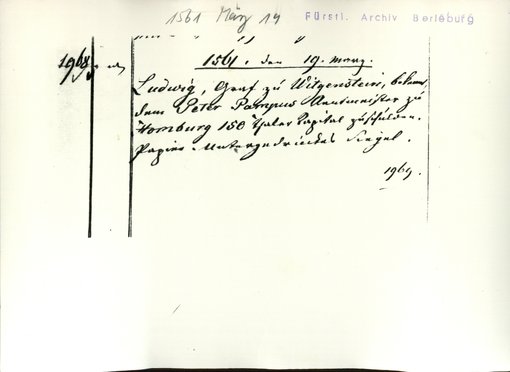 1561 März 19
Fürstl. Archiv Berleburg
1968.
1561. den 19. März.
Ludwig, Graf zu Witgenstein, bekennt
dem Peter Pampus Rentmeister zu
Homburg 150 Thaler Capital zuschulden.
Papier. Untergedrücktes Siegel.
1969.